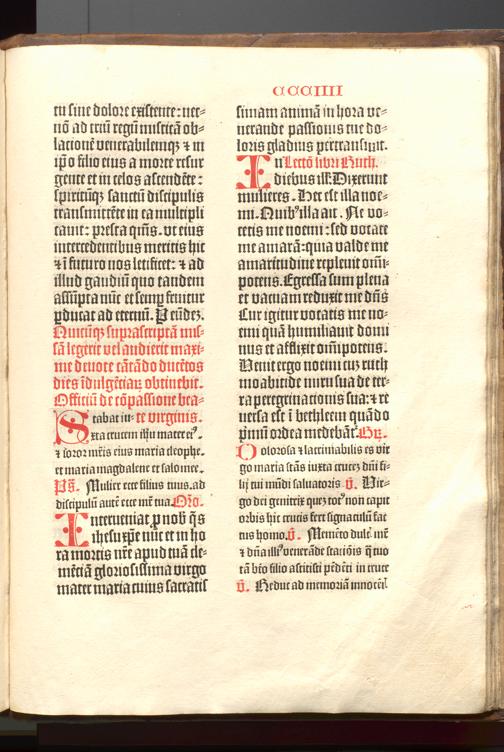 CCCIIII
tu sine dolore existente: nec-
nō ad triū regū misticā ob-
lacionē venerabilemqꝫ ⁊ in
ip̄o filio eius a morte resur
gente et in celos ascendēte:
spiritūqꝫ sanctū discipulis
transmittēte in ea multipli
cauit: presta q̄sum9. vt eius
intercedentibus meritis hic
⁊ ī futuro nos letificet: ⁊ ad
illud gaudiū quo tandem
assūpta nūc et semꝑ fruitur
ꝑducat ad eternū. P eūdeꝫ.
Quicūqꝫ suprascriptā mis-
sā legerit vel audierit maxi-
me deuote cātādo ducētos
dies īdulgētiaꝝ obtinebit.
Officiū de cōpassione bea-
Stabat iu- te virginis.
xta crucem ihū mater ei9.
⁊ soror mr̄is eius maria cleophe.
et maria magdalene et salomee.
Ps̄. Mulier ecce filius tuus. ad
discipulū autē ecce mr̄ tua. Oro.
Interueniat p nob̄ q̄s
ihesu xp̄e nūc et in ho
ra mortis nr̄e apud tuā cle-
mētiā gloriosissima virgo
mater maria cuius sacratis
simam animā in hora ve-
nerande passionis tue do-
loris gladius pertransiuit.
In Lectō libri Ruth.
diebus ill: Dixerunt
mulieres. Hec est illa noe-
mi. Quib9 illa ait. Ne vo-
cetis me noemi: sed vocate
me amarā: quia valde me
amaritudine repleuit om̄i-
potens. Egressa sum plena
et vacuam reduxit me dn̄s
Cur igitur vocatis me no-
emi quā humiliauit domi
nus et afflixit om̄ipotens.
Uenit ergo noemi cuꝫ ruth
moabitide nuru sua de ter-
ra peregrinacionis sua: ⁊ re
uersa est ī bethleem quādo
pimū ordea medebāt. Gr̄.
Dolorosa ⁊ lacrimabilis es vir
go maria stās iuxta cruceꝫ dn̄i fi-
lij tui mūdi saluatoris v̄. Uir-
go dei genitrix queꝫ tot9 non capit
orbis hic crucis fert signaculū fac
tus homo. v̄. Memēto dulc̄ mr̄
⁊ dn̄a ill9 venerāde stacōis q̄ tuo
tā bt̄o filio astitisti pēdēti in cruce
v̄. Reduc ad memoriā innocēl